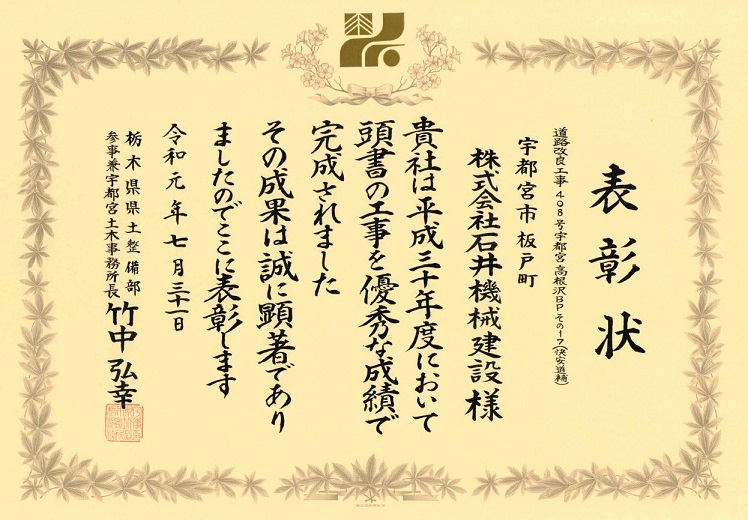 表彰状
道路改良工事 408号宇都宮高根沢BPその17(快安道補)
宇都宮市板戸町
株式会社石井機械建設様
貴社は平成三十年度において
頭書の工事を優秀な成績で
完成されました
その成果は誠に顕著であり
ましたのでここに表彰します
令和元年七月三十一日
栃木県県土整備部
参事兼宇都宮土木事務所長 竹中弘幸